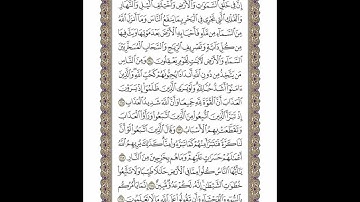 إِنَّ فِي خَلْقِ ٱلسَّمَٰوَٰتِ وَٱلْأَرْضِ وَٱخْتِلَٰفِ ٱلَّيْلِ وَٱلنَّهَارِ
وَٱلْفُلْكِ ٱلَّتِي تَجْرِي فِي ٱلْبَحْرِ بِمَا يَنفَعُ ٱلنَّاسَ وَمَآ أَنزَلَ ٱللَّهُ
مِنَ ٱلسَّمَآءِ مِن مَّآءٍ فَأَحْيَا بِهِ ٱلْأَرْضَ بَعْدَ مَوْتِهَا وَبَثَّ فِيهَا
مِن كُلِّ دَآبَّةٍ وَتَصْرِيفِ ٱلرِّيَٰحِ وَٱلسَّحَابِ ٱلْمُسَخَّرِ بَيْنَ
ٱلسَّمَآءِ وَٱلْأَرْضِ لَأٓيَٰتٍ لِّقَوْمٍ يَعْقِلُونَ ۝ وَمِنَ ٱلنَّاسِ
مَن يَتَّخِذُ مِن دُونِ ٱللَّهِ أَندَادًا يُحِبُّونَهُمْ كَحُبِّ ٱللَّهِ وَٱلَّذِينَ
ءَامَنُوٓا۟ أَشَدُّ حُبًّا لِّلَّهِ وَلَوْ يَرَى ٱلَّذِينَ ظَلَمُوٓا۟ إِذْ يَرَوْنَ
ٱلْعَذَابَ أَنَّ ٱلْقُوَّةَ لِلَّهِ جَمِيعًا وَأَنَّ ٱللَّهَ شَدِيدُ ٱلْعَذَابِ ۝
إِذْ تَبَرَّأَ ٱلَّذِينَ ٱتُّبِعُوا۟ مِنَ ٱلَّذِينَ ٱتَّبَعُوا۟ وَرَأَوُا۟ ٱلْعَذَابَ
وَتَقَطَّعَتْ بِهِمُ ٱلْأَسْبَابُ ۝ وَقَالَ ٱلَّذِينَ ٱتَّبَعُوا۟ لَوْ أَنَّ
لَنَا كَرَّةً فَنَتَبَرَّأَ مِنْهُمْ كَمَا تَبَرَّءُوا۟ مِنَّا كَذَٰلِكَ يُرِيهِمُ ٱللَّهُ
أَعْمَٰلَهُمْ حَسَرَٰتٍ عَلَيْهِمْ وَمَا هُم بِخَٰرِجِينَ مِنَ ٱلنَّارِ ۝
يَٰٓأَيُّهَا ٱلنَّاسُ كُلُوا۟ مِمَّا فِي ٱلْأَرْضِ حَلَٰلًا طَيِّبًا وَلَا تَتَّبِعُوا۟
خُطُوَٰتِ ٱلشَّيْطَٰنِ إِنَّهُ لَكُمْ عَدُوٌّ مُّبِينٌ ۝ إِنَّمَا يَأْمُرُكُم
بِٱلسُّوٓءِ وَٱلْفَحْشَآءِ وَأَن تَقُولُوا۟ عَلَى ٱللَّهِ مَا لَا تَعْلَمُونَ ۝